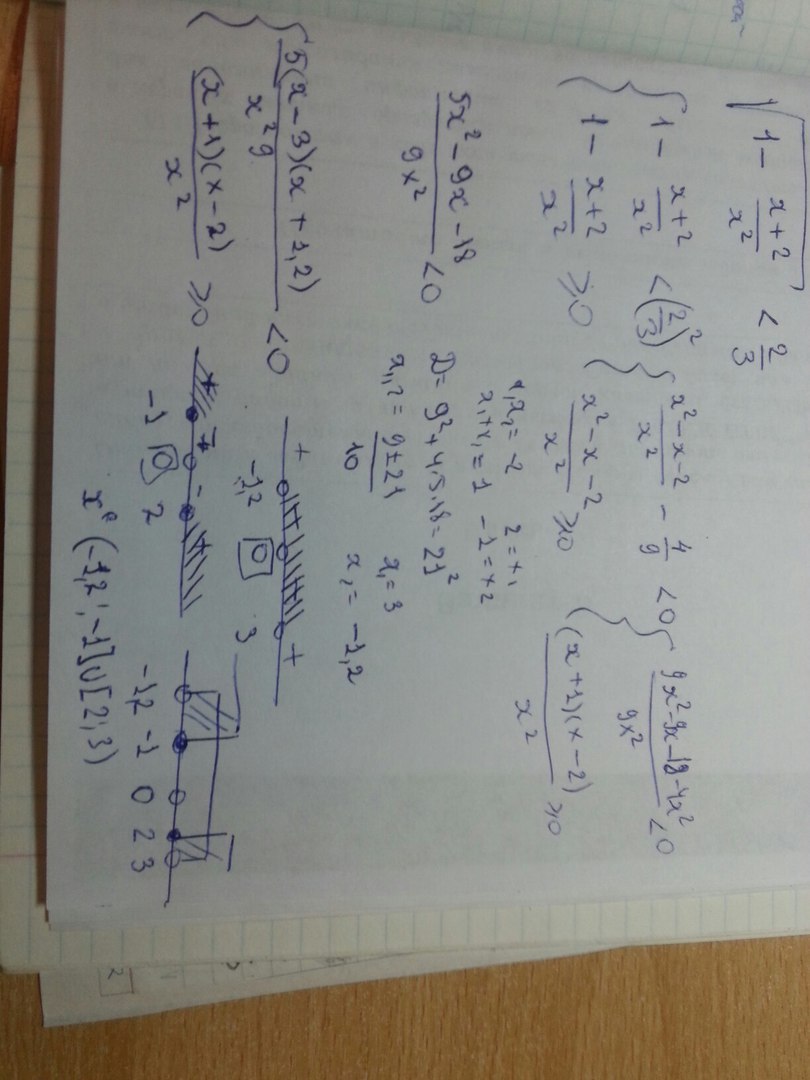 √(1 - (x+2)/x²) < 2/3
{ 1 - (x+2)/x² < (2/3)²
{ 1 - (x+2)/x² ≥ 0
{ (x²-x-2)/x² - 4/9 < 0
{ (x²-x-2)/x² ≥ 0
{ (9x²-9x-18-4x²)/9x² < 0
{ (x+1)(x-2)/x² ≥ 0
x₁x₂ = -2 2 = x₁
x₁+x₂ = 1 -1 = x₂
(5x²-9x-18)/9x² < 0
D = 9²+4·5·18 = 21²
x₁,₂ = (9±21)/10 x₁ = 3
x₂ = -1,2
{ 5(x-3)(x+1,2)/x²9 < 0
+ - - +
-1,2 0 3
{ (x+1)(x-2)/x² ≥ 0
+ - - +
-1 0 2
-1,2 -1 0 2 3
x ∈ (-1,2; -1]∪[2; 3)